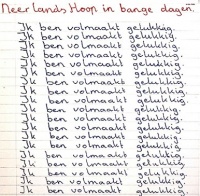 Neerlands Hoop in bange dagen.
Ik ben volmaakt gelukkig.
Ik ben volmaakt gelukkig.
Ik ben volmaakt gelukkig.
Ik ben volmaakt gelukkig.
Ik ben volmaakt gelukkig.
Ik ben volmaakt gelukkig.
Ik ben volmaakt gelukkig.
Ik ben volmaakt gelukkig.
Ik ben volmaakt gelukkig.
Ik ben volmaakt gelukkig.
Ik ben volmaakt gelukkig.
Ik ben volmaakt gelukkig.
Ik ben volmaakt gelukkig.
Ik ben volmaakt gelukkig.
Ik ben volmaakt gelukkig.